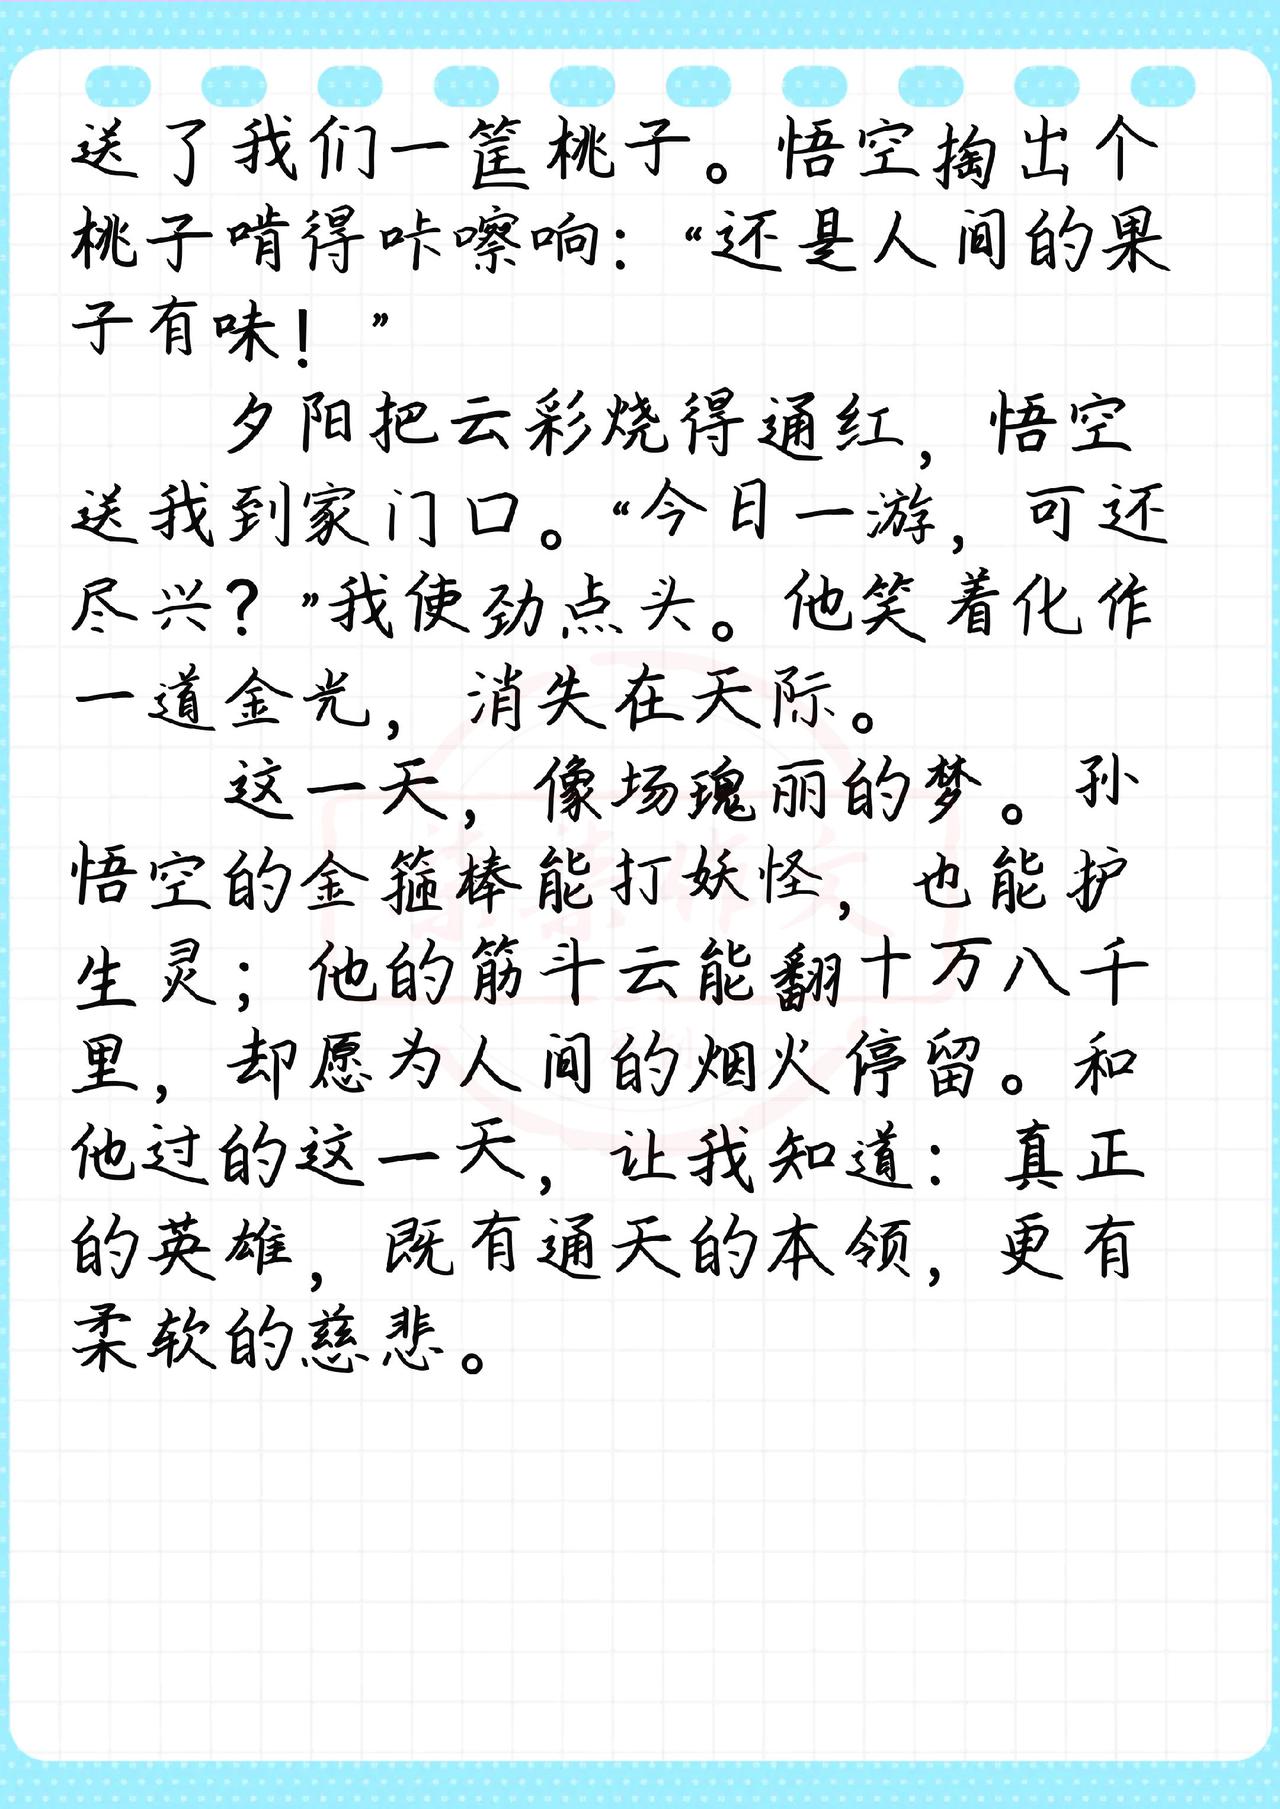 送了我们一筐桃子。悟空掏出个
桃子啃得咔嚓响：“还是人间的果
子有味！”
夕阳把云彩烧得通红，悟空
送我到家门口。“今日一游，可还
尽兴？”我使劲点头。他笑着化作
一道金光，消失在天际。
这一天，像场瑰丽的梦。孙
悟空的金箍棒能打妖怪，也能护
生灵；他的筋斗云能翻十万八千
里，却愿为人间的烟火停留。和
他过的这一天，让我知道：真正
的英雄，既有通天的本领，更有
柔软的慈悲。